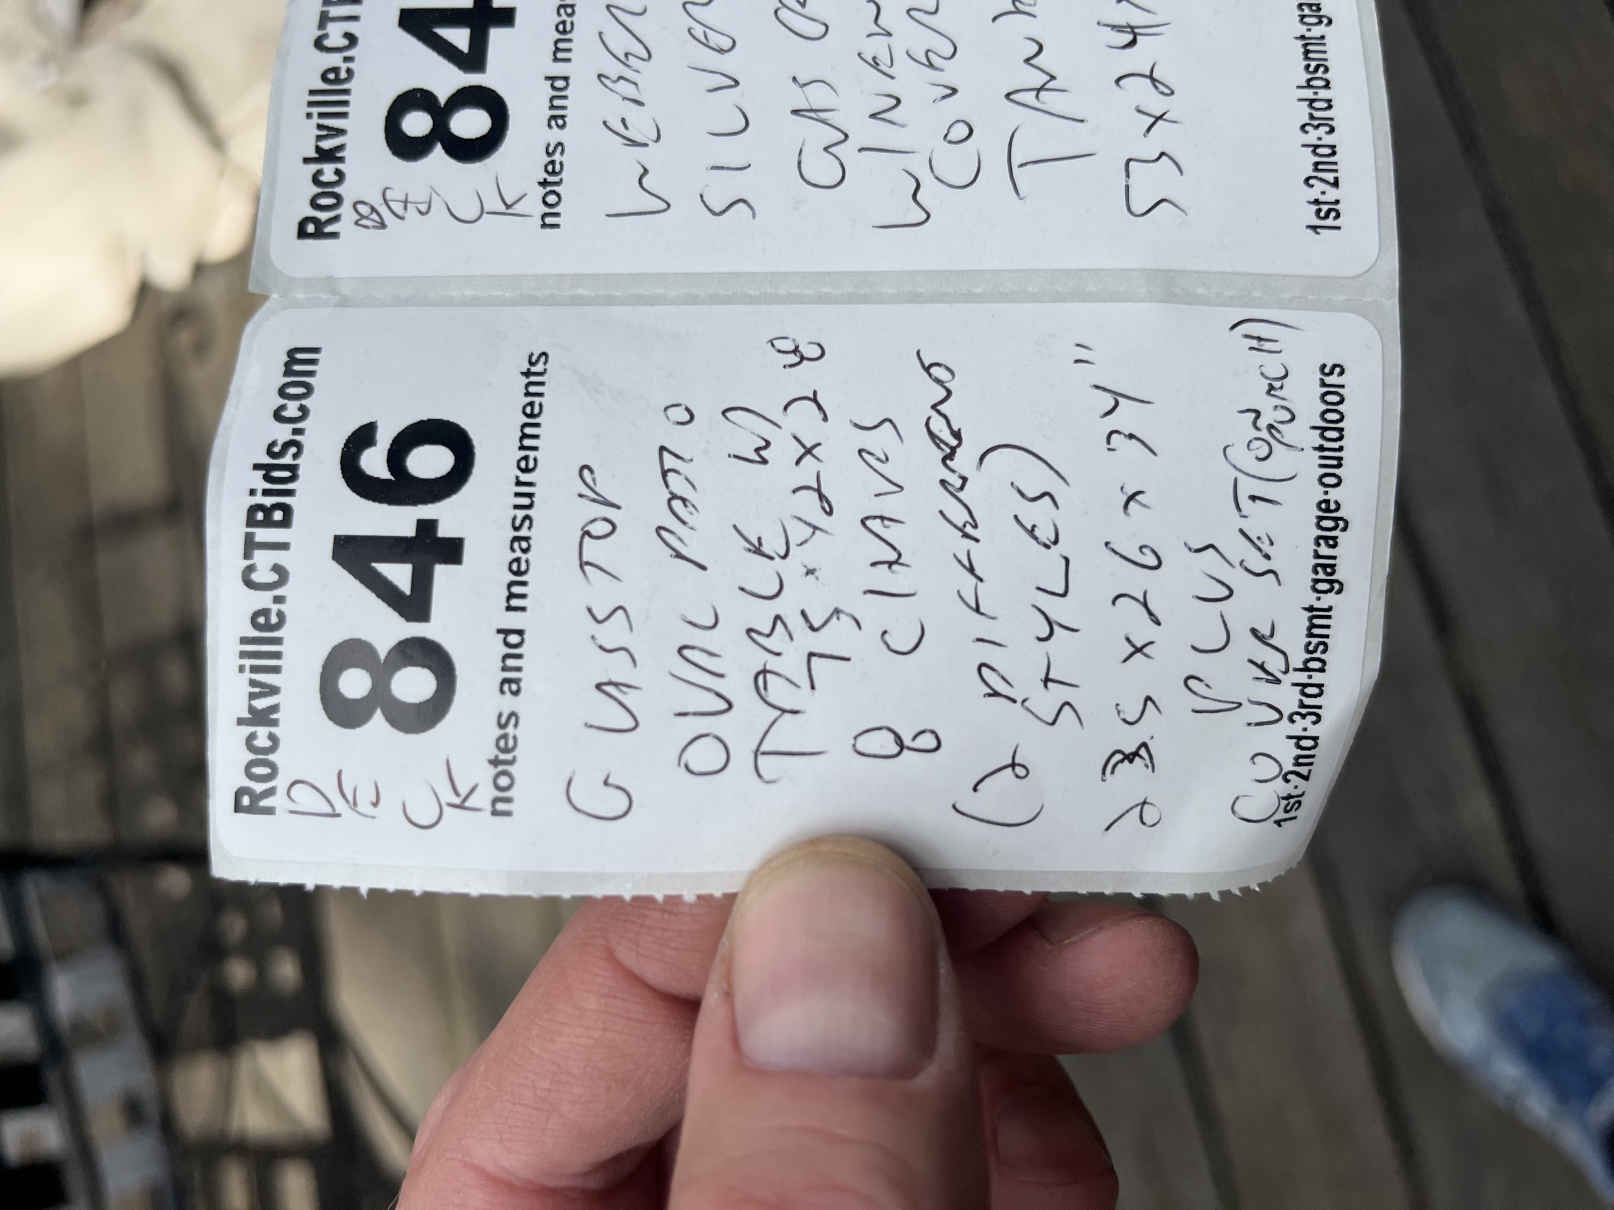 Rockville.CTBids.com
DECK
846
notes and measurements
GLASS TOP
OVAL PATIO
TABLE W/
75 x 42 x 28
8 CHAIRS
(2 DIFFERENT
STYLES)
23.5 x 26 x 34"
PLUS
COVER SET (ON PORCH)
1st·2nd·3rd·bsmt·garage·outdoors
Rockville.CTB
DECK
84
notes and meas
WEBER
SILVER
GAS
WINEW
COVER
TANK
53 x 24
1st·2nd·3rd·bsmt·ga